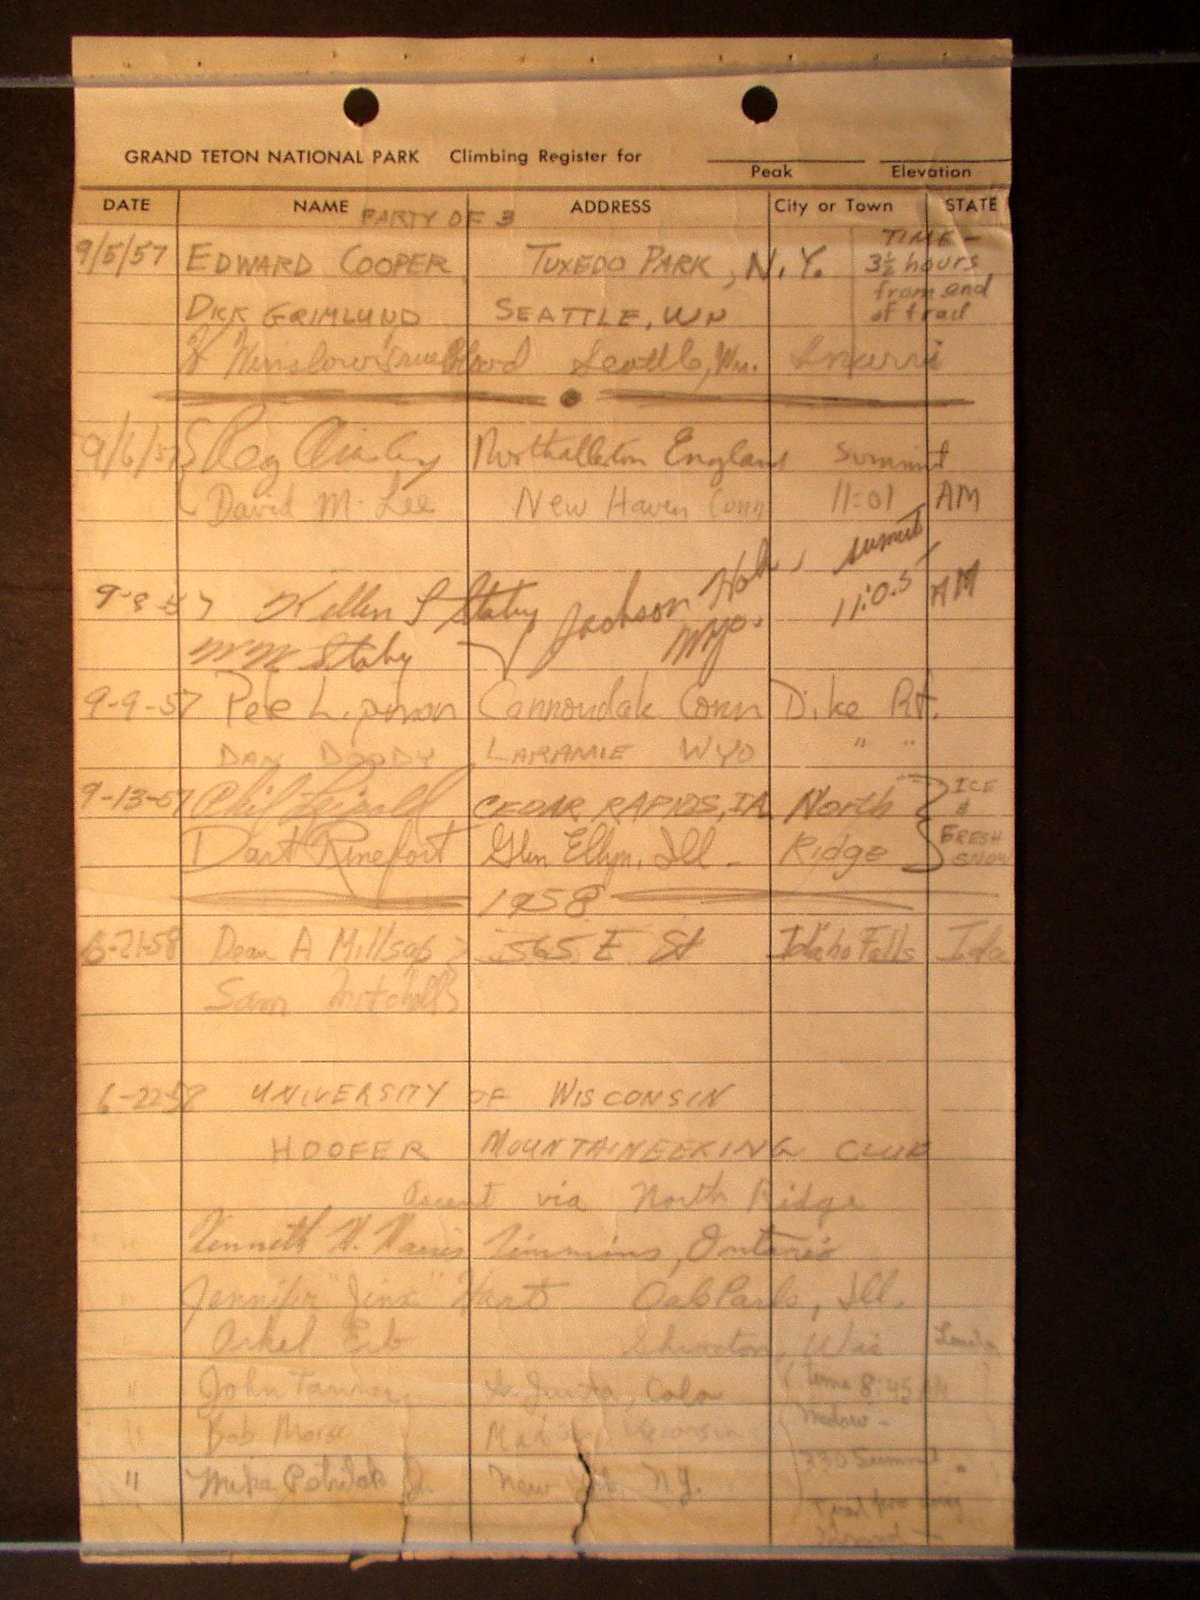 GRAND TETON NATIONAL PARK Climbing Register for
Peak Elevation
DATE NAME ADDRESS City or Town STATE
PARTY OF 3
9/5/57 EDWARD COOPER TUXEDO PARK, N.Y. TIME – 3½ hours from end of trail
DICK GRIMLUND SEATTLE, WN
Winslow Seattle, Wn.
9/6/57 Reg Northallerton England Summit
David M. Lee New Haven Conn 11:01 AM
9-8-57 Killen S Staby Jackson Hole, Wyo. summit 11:05 AM
Staby
9-9-57 Pete Lipman Cannondale Conn Dike Rt.
DAN DOODY LARAMIE WYO " "
9-13-57 Phil CEDAR RAPIDS, IA North ICE & FRESH SNOW
Dart Rinefort Glen Ellyn, Ill. Ridge
1958
6-21-58 Dean A Millsap 565 E St Idaho Falls Ida
Sam Mitchell
6-22-58 UNIVERSITY OF WISCONSIN
HOOFER MOUNTAINEERING CLUB
Ascent via North Ridge
Kenneth Timmins, Ontario
Jennifer "Jinx" Hart Oak Park, Ill.
Wis
" John La Junta, Colo time 8:45 AM
" Bob Morse Madison Wisconsin
" Mike New York, NY. 330 Summit